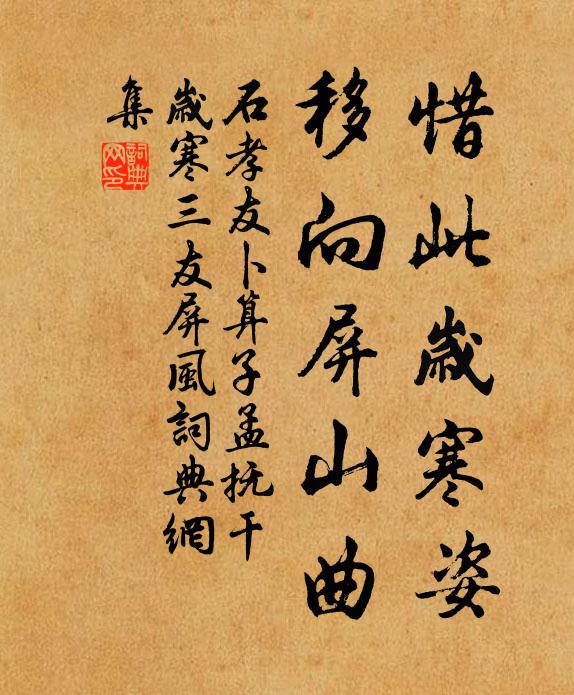 惜此歲寒姿
移向屏山曲
石孝友卜算子孟抚干
歲寒三友屏風詞典網
集
詞典網印